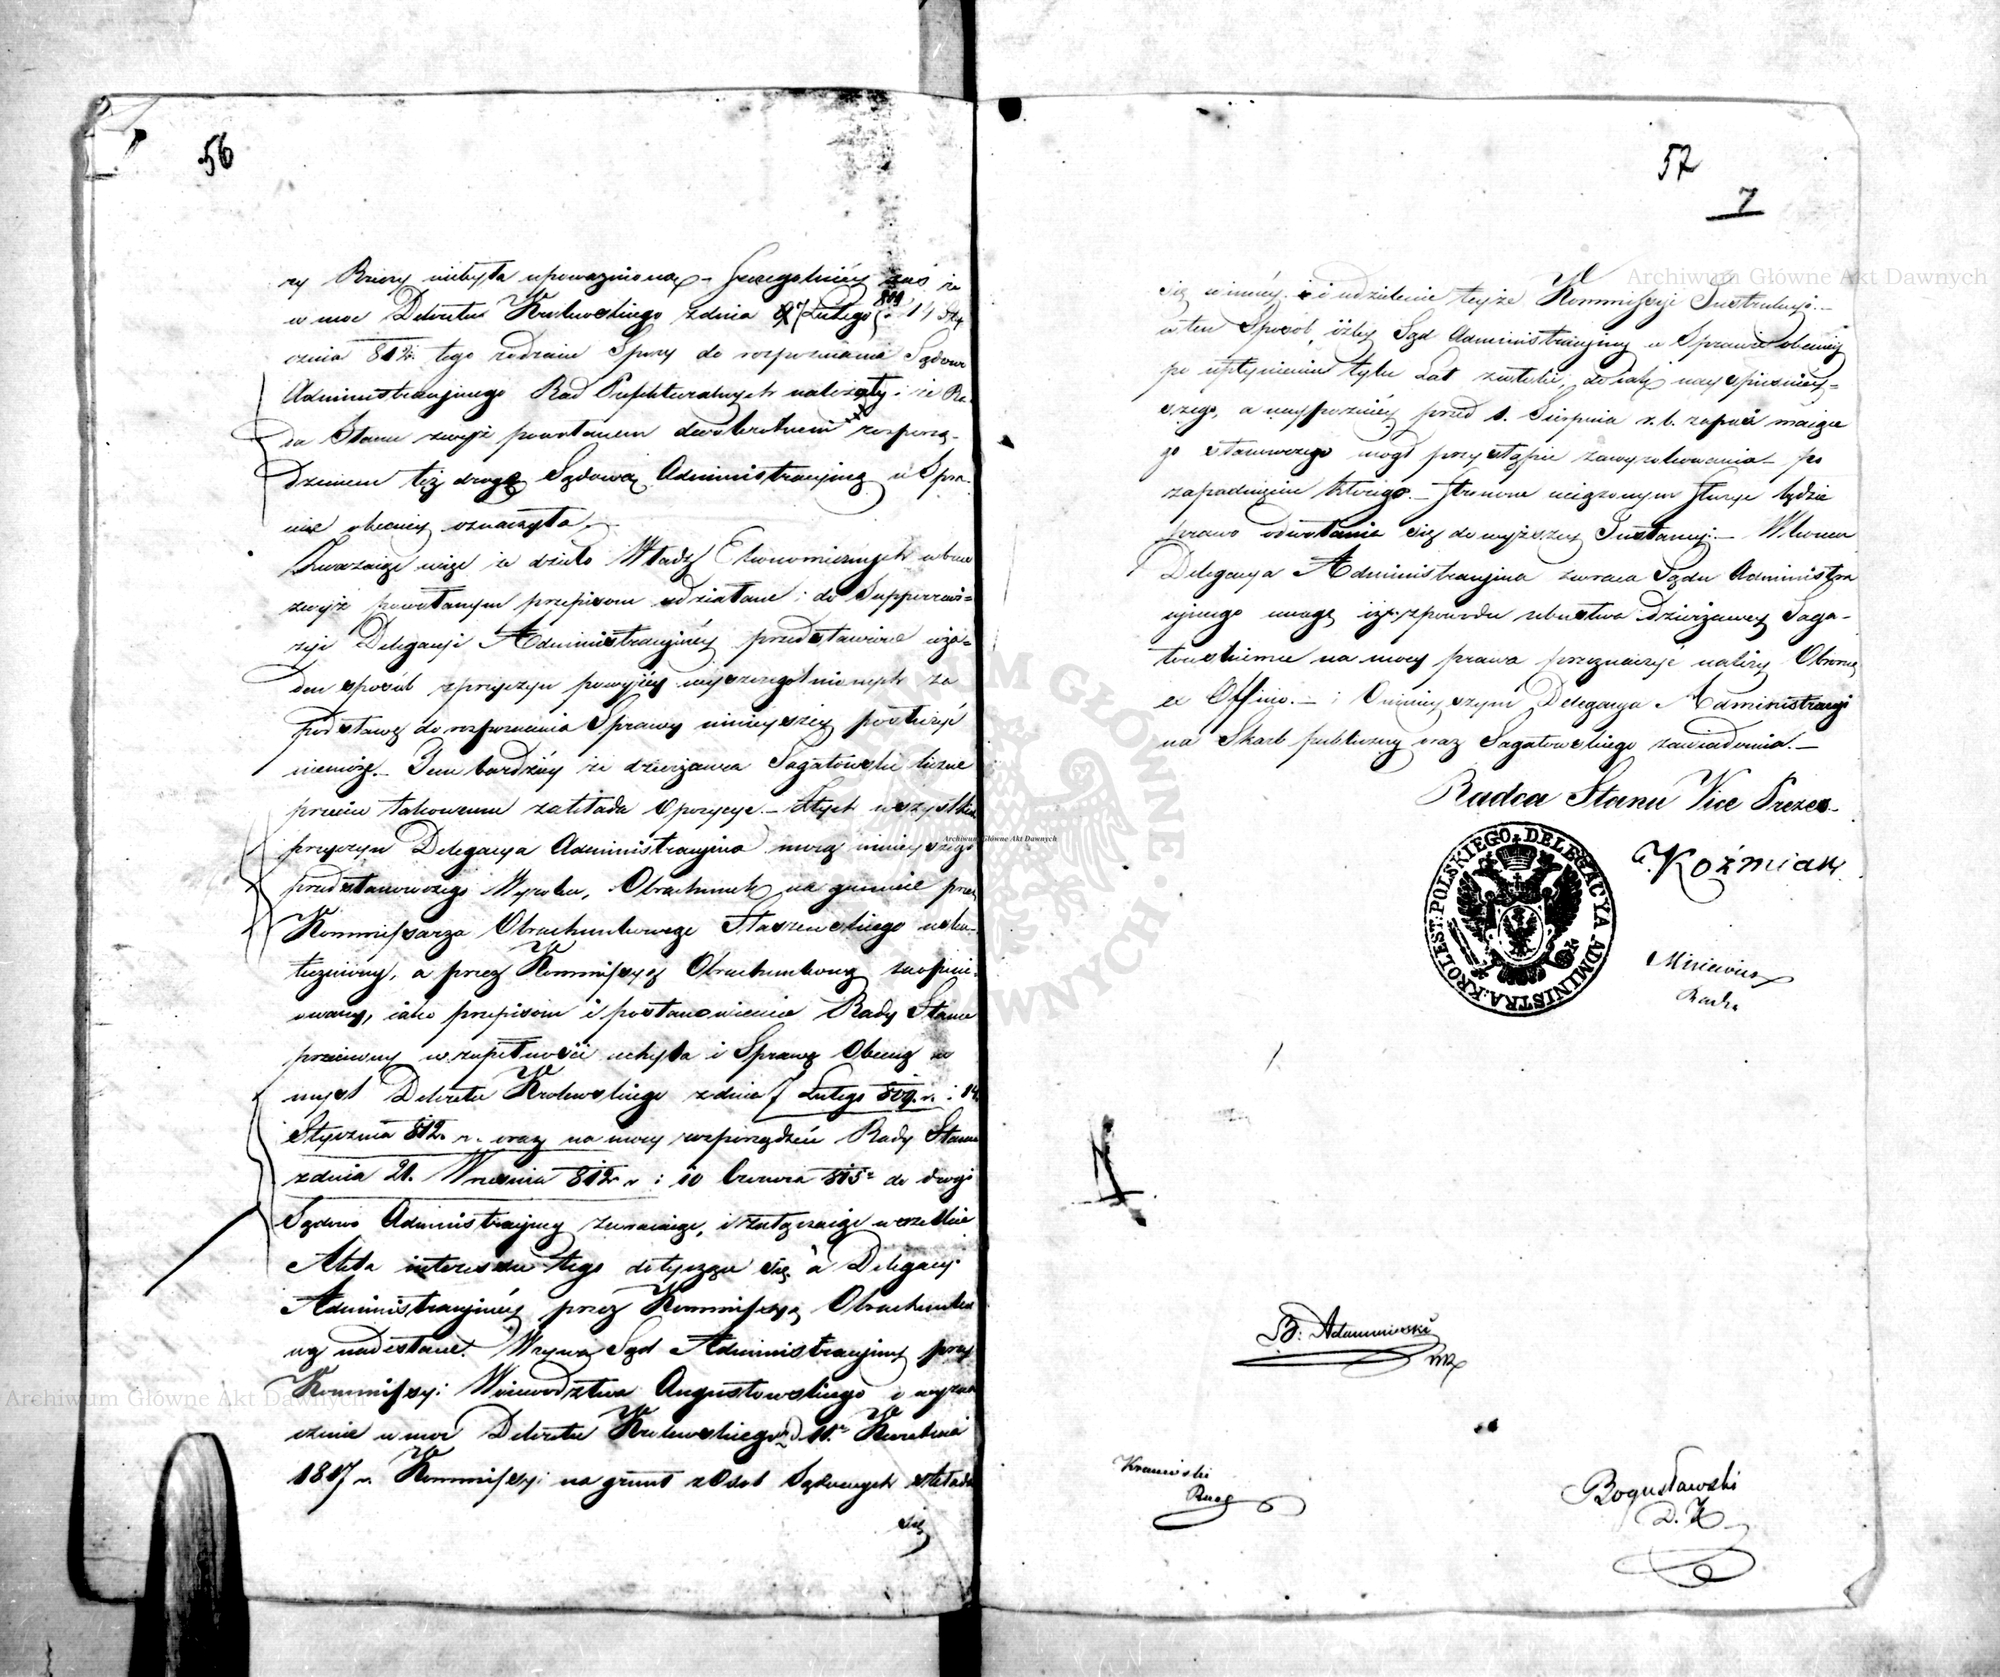 56
ry Bziury niebyła upoważnioną – Szczegolniey zaś że
w moc Dekretu Krolewskiego z dnia 7 Lutego 809 i 14 Sty
cznia 812 r. tego rodzaiu Spory do rozpoznania Sądowo
Administracyinego Rad Prefekturalnych należały: że Ra-
da Stanu zwyż powołanem dwukrotnem rozporzą-
dzeniem też drogę Sądową Administracyiną w Spra-
wie obecney oznaczyła.
Zważaiąc więc że dzieło Władz Ekonomicznych wbrew
zwyż powołanym przepisom zdziałane i do Superrewi-
zyi Delegacyi Administracyiney przedstawione w ża-
den sposób z przyczyn powyżey wyszczegolnionych za
podstawę do rozpoznania Sprawy ninieyszey posłużyć
niemoże. – Tem bardziey że dzierżawca Sagatowski liczne
przeciw takowemu zakłada Opozycye. – Z tych wszystkich
przyczyn Delegacya Administracyina mocą ninieyszego
przedstanowczego Wyroku, Obrachunek na gruncie przez
Kommissarza Obrachunkowego Staszewskiego usku-
teczniony, a przez Kommissyę Obrachunkową zaopinio-
wany, iako przepisom i postanowienie Rady Stanu
przeciwny w zupełności uchyla i Sprawę Obecną w
myśl Dekretu Krolewskiego z dnia 7 Lutego 809. r. i 14
Stycznia 812. r. oraz na mocy rozporządzeń Rady Stanu
z dnia 21. Września 812 r. i 10 Czerwca 815 r. do drogi
Sądowo Administracyiney zwracaiąc, i załączaiąc wszelkie
Akta interesu tego dotyczące się a Delegacyi
Administracyiney przez Kommissyą Obrachunko
wą nadesłane. Wzywa Sąd Administracyiny przy
Kommissyi Woiewodztwa Augustowskiego o wyzna
czenie w moc Dekretu Krolewskiego z d. 11. Kwietnia
1817 r. Kommissyi na grunt z Osob Sądowych składać
się
57
7
się winney, i o udzielenie teyże Kommissyi Instrukcyi. –
w ten Sposób, iżby Sąd Administracyiny w Sprawie obecney
po upłynieniu tylu Lat zaległey, do iak nayspieszniey-
szego, a naypoźniey przed 1. Sierpnia r. b. zapaść maiące
go stanowczego mogł przystąpić zawyrokowania – po
zapadnięciu którego. – Stronom uciążonym służyć będzie
prawo odwołania się do wyższey Instancyi. – W końcu
Delegacya Administracyina zwraca Sądu Administra
cyinego uwagę iż z powodu ubóstwa Dzierżawcy Saga-
towskiemu na mocy prawa przeznaczyć należy Obronę
ex Officio. – i O ninieyszym Delegacya Administracyi
na Skarb publiczny oraz Sagatowskiego zawiadomia. –
Radca Stanu Vice Prezes
Koźmian
KROLEST: POLSKIEGO DELEGACYA ADMINISTRA:
B: Adamowski
Bogusławski
D. K.
Archiwum Główne Akt Dawnych
Archiwum Główne Akt Dawnych
Archiwum Główne Akt Dawnych